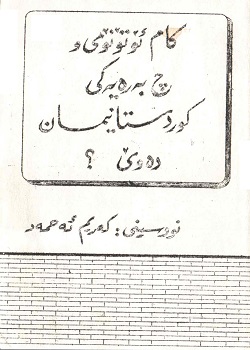 کام ئۆتۆنۆمی و
چ بەرەیەکی
کوردستانیمان
دەوێ ؟
نووسینی : کەریم ئەحمەد